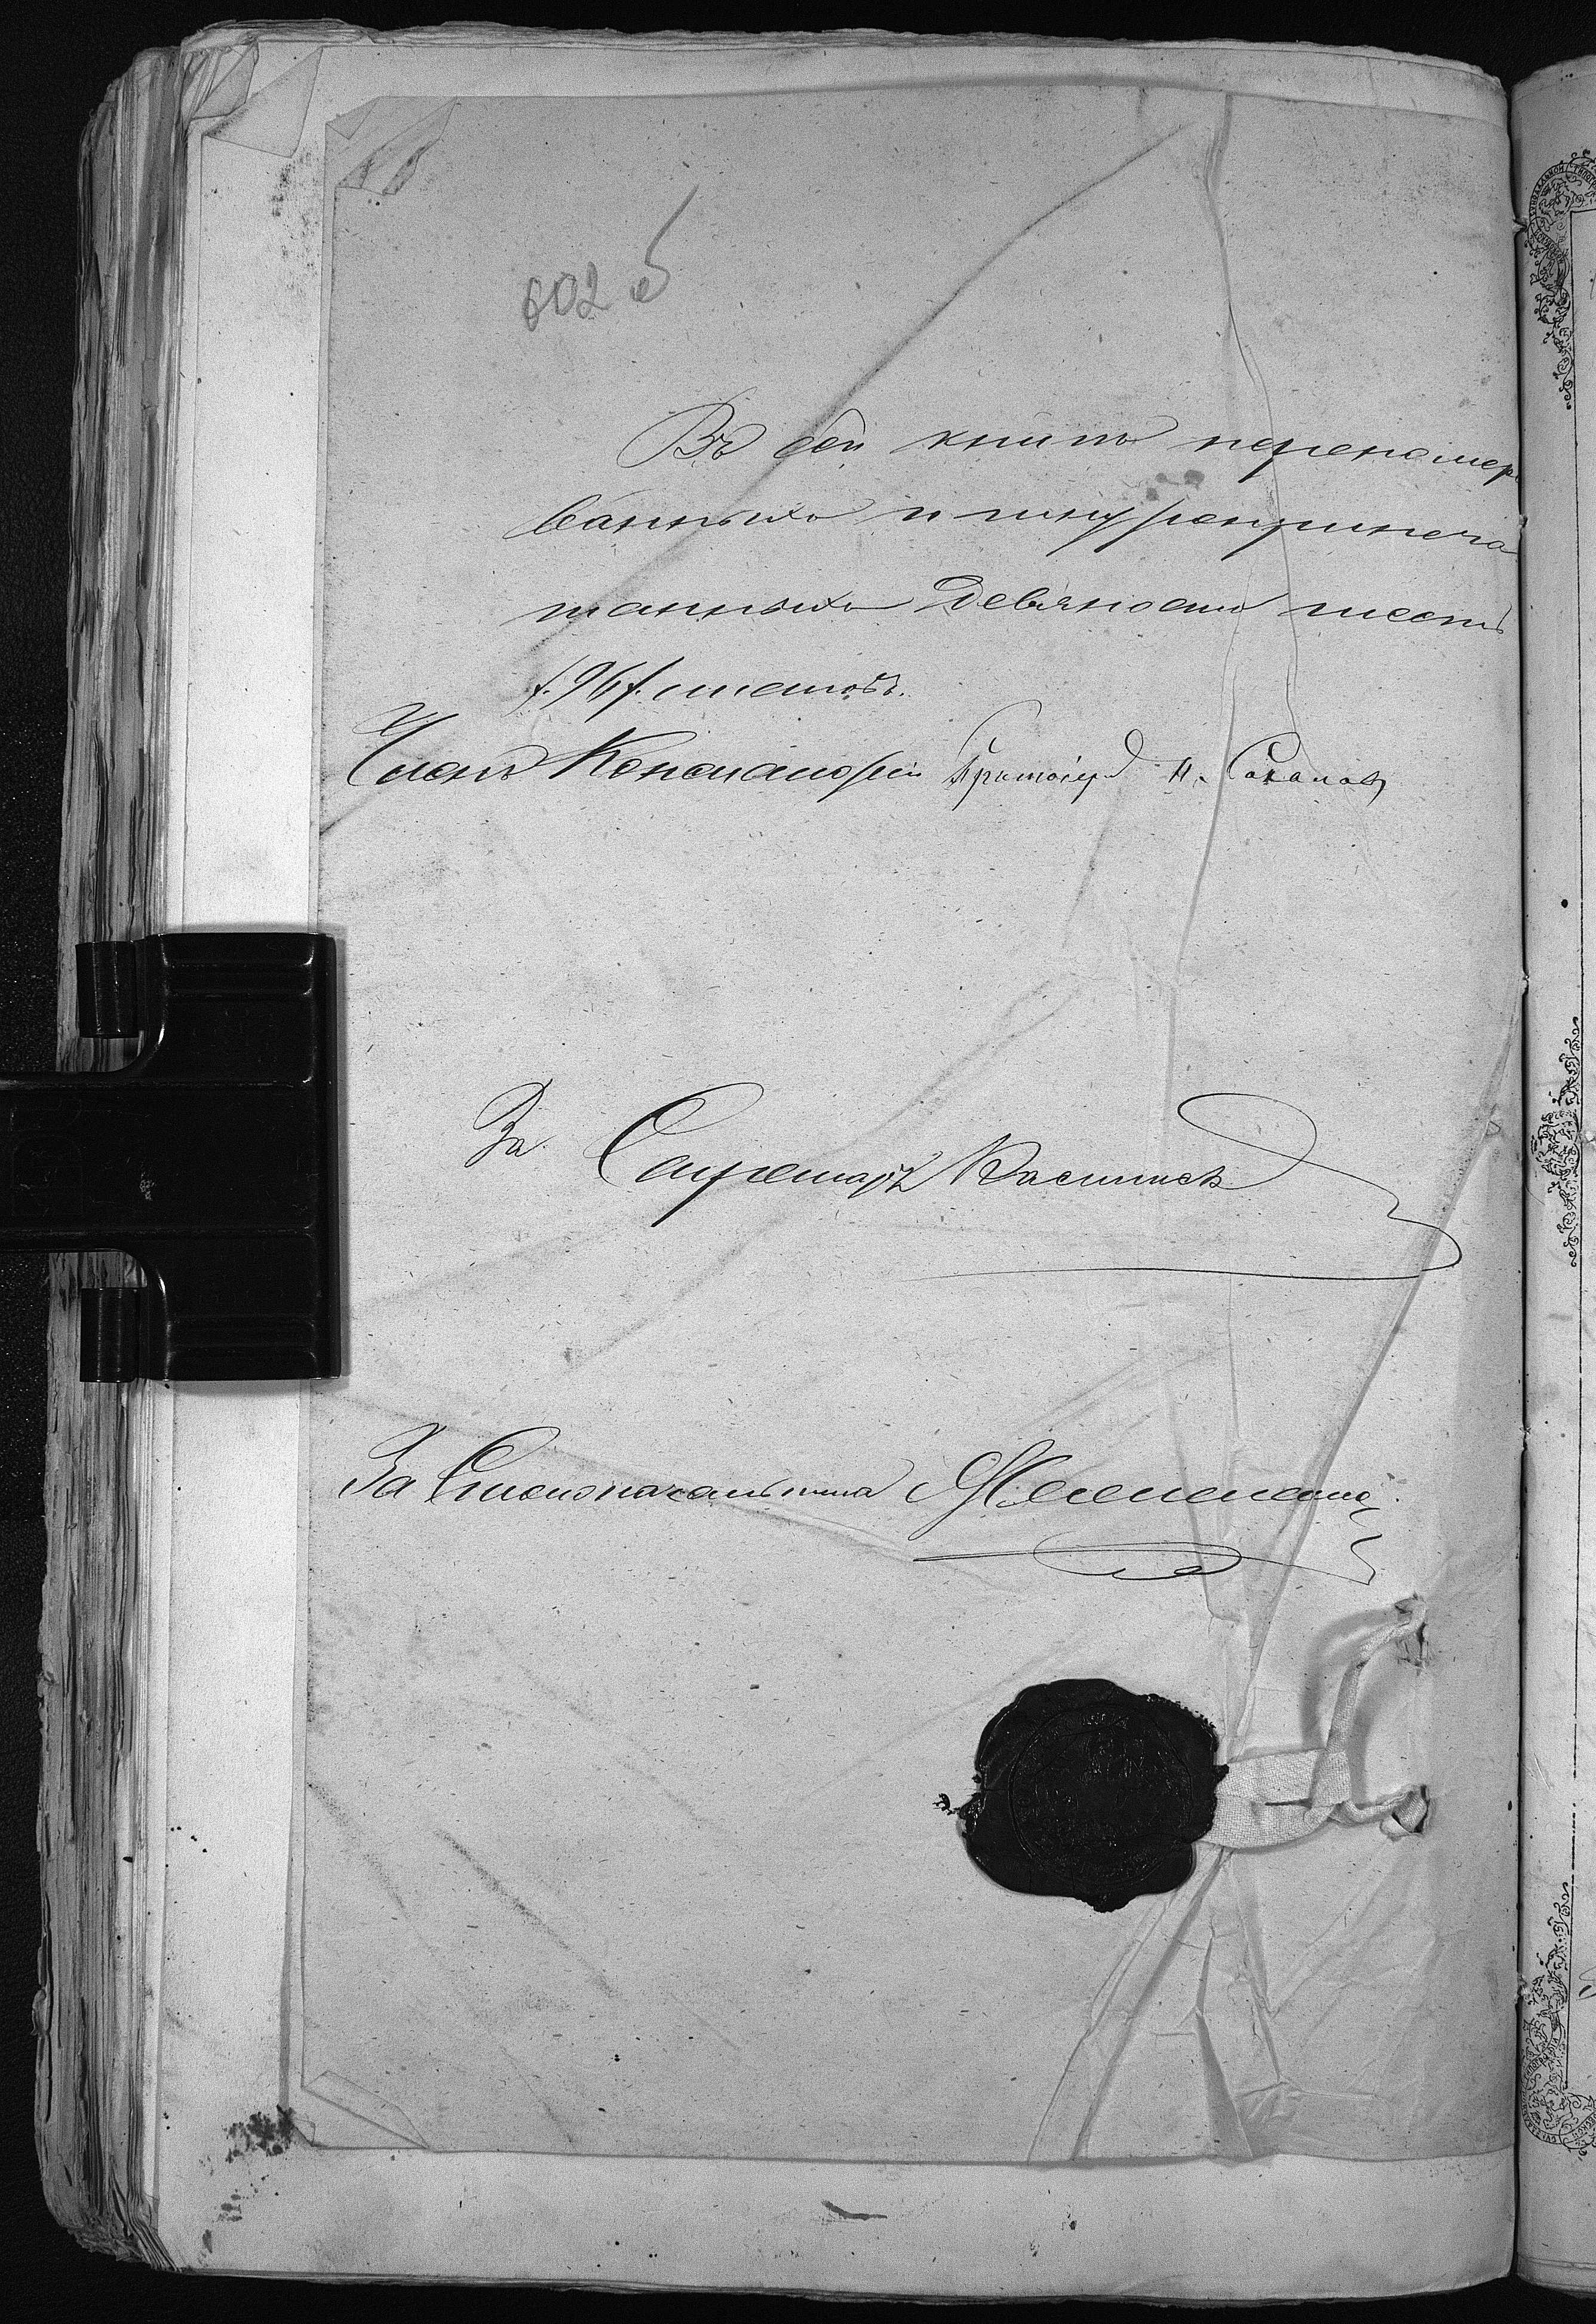 602 б
Въ сей книгѣ перенумеро
ванныхъ и шнуроприпеча
танныхъ девяносто шесть
/:96:/ листовъ.
Членъ Консисторіи Протоіерей Н. Соколовъ
За Секретаря
За Столоначальника